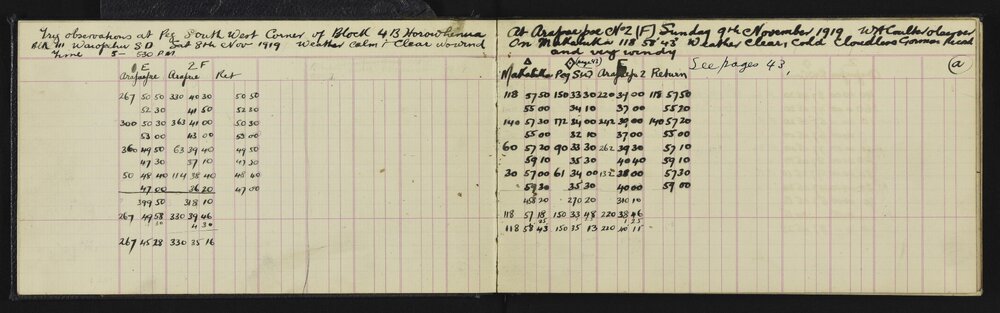 Try observations at Peg South West Corner of Block 4B Horowhenua
Blk III Waiopehu SD Sat 8th Nov 1919 Weather Calm & Clear no wind
Time 5 - 530 PM
E 2 F
Ret
267 50 50 330 40 30 50 50
52 30 41 50 52 30
300 50 30 363 41 00 50 30
53 00 43 00 53 00
360 49 50 63 39 40 49 50
47 30 37 10 47 30
50 48 40 114 38 40 48 40
47 00 36 20 47 00
399 50 318 10
267 49 58 330 39 46
4 30
267 45 28 330 35 16
At No 2 (F) Sunday 9th November 1919 WH Coulter observer
On 118° 58' 43" Weather Clear, Cold Cloudless
and very windy
See pages 43,
(a)
Peg SW 2 Return
118 57 50 150 33 30 220 39 00 118 57 50
55 00 34 10 37 00 55 20
140 57 30 172 34 00 242 39 00 140 57 20
55 00 32 10 37 00 55 00
60 57 20 90 33 30 262 39 30 57 10
59 10 35 30 40 40 59 10
30 57 00 61 34 00 132 38 00 57 30
59 30 35 30 40 00 59 00
458 20 270 20 310 10
118 57 18 150 33 48 220 38 46
1 25
118 58 43 150 35 13 220 40 11